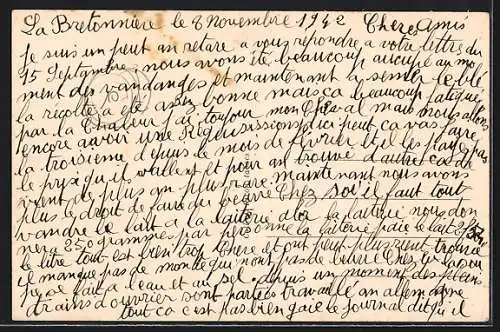 La Bretonniere le 8 Novembre 1942 Cheres Amis
je suis un peut an retare a vous repondre a votre lettre du
15 Septembre nous avons ete beaucoup aucupé au mo
ment des vandanges et maintenant a semer le blé
la recolte a ete assez bonne mais ca beaucoup fatigué
par la Chaleur j'ai toujour mon Cheval mais nous allons
encore avoir une Requisission d'ici peut ca vas faire
la troisieme depuis le mois de fevrier et il les paye pas
le prix qu'il vallent et pour an trouvé d'autre ca de
vient de plus an plus rare maintenant nous avons
plus le droit de faire du beurre Chez soi il faut tout
vandre le lait a la laiterie et la laiterie nous don
nera 250 grammes par personne la laiterie paie le lait
le litre tout est bien trop Chere et ont peut plus rient trouvé
il manque pas de monde qui nont pas de beurre Chez la
se fait a l'eau et au sel depuis un moment des
trains d'ouvrier sont partees travaillé an allemagne
tout ca c'est pas bien gaie le journal dit qu'il